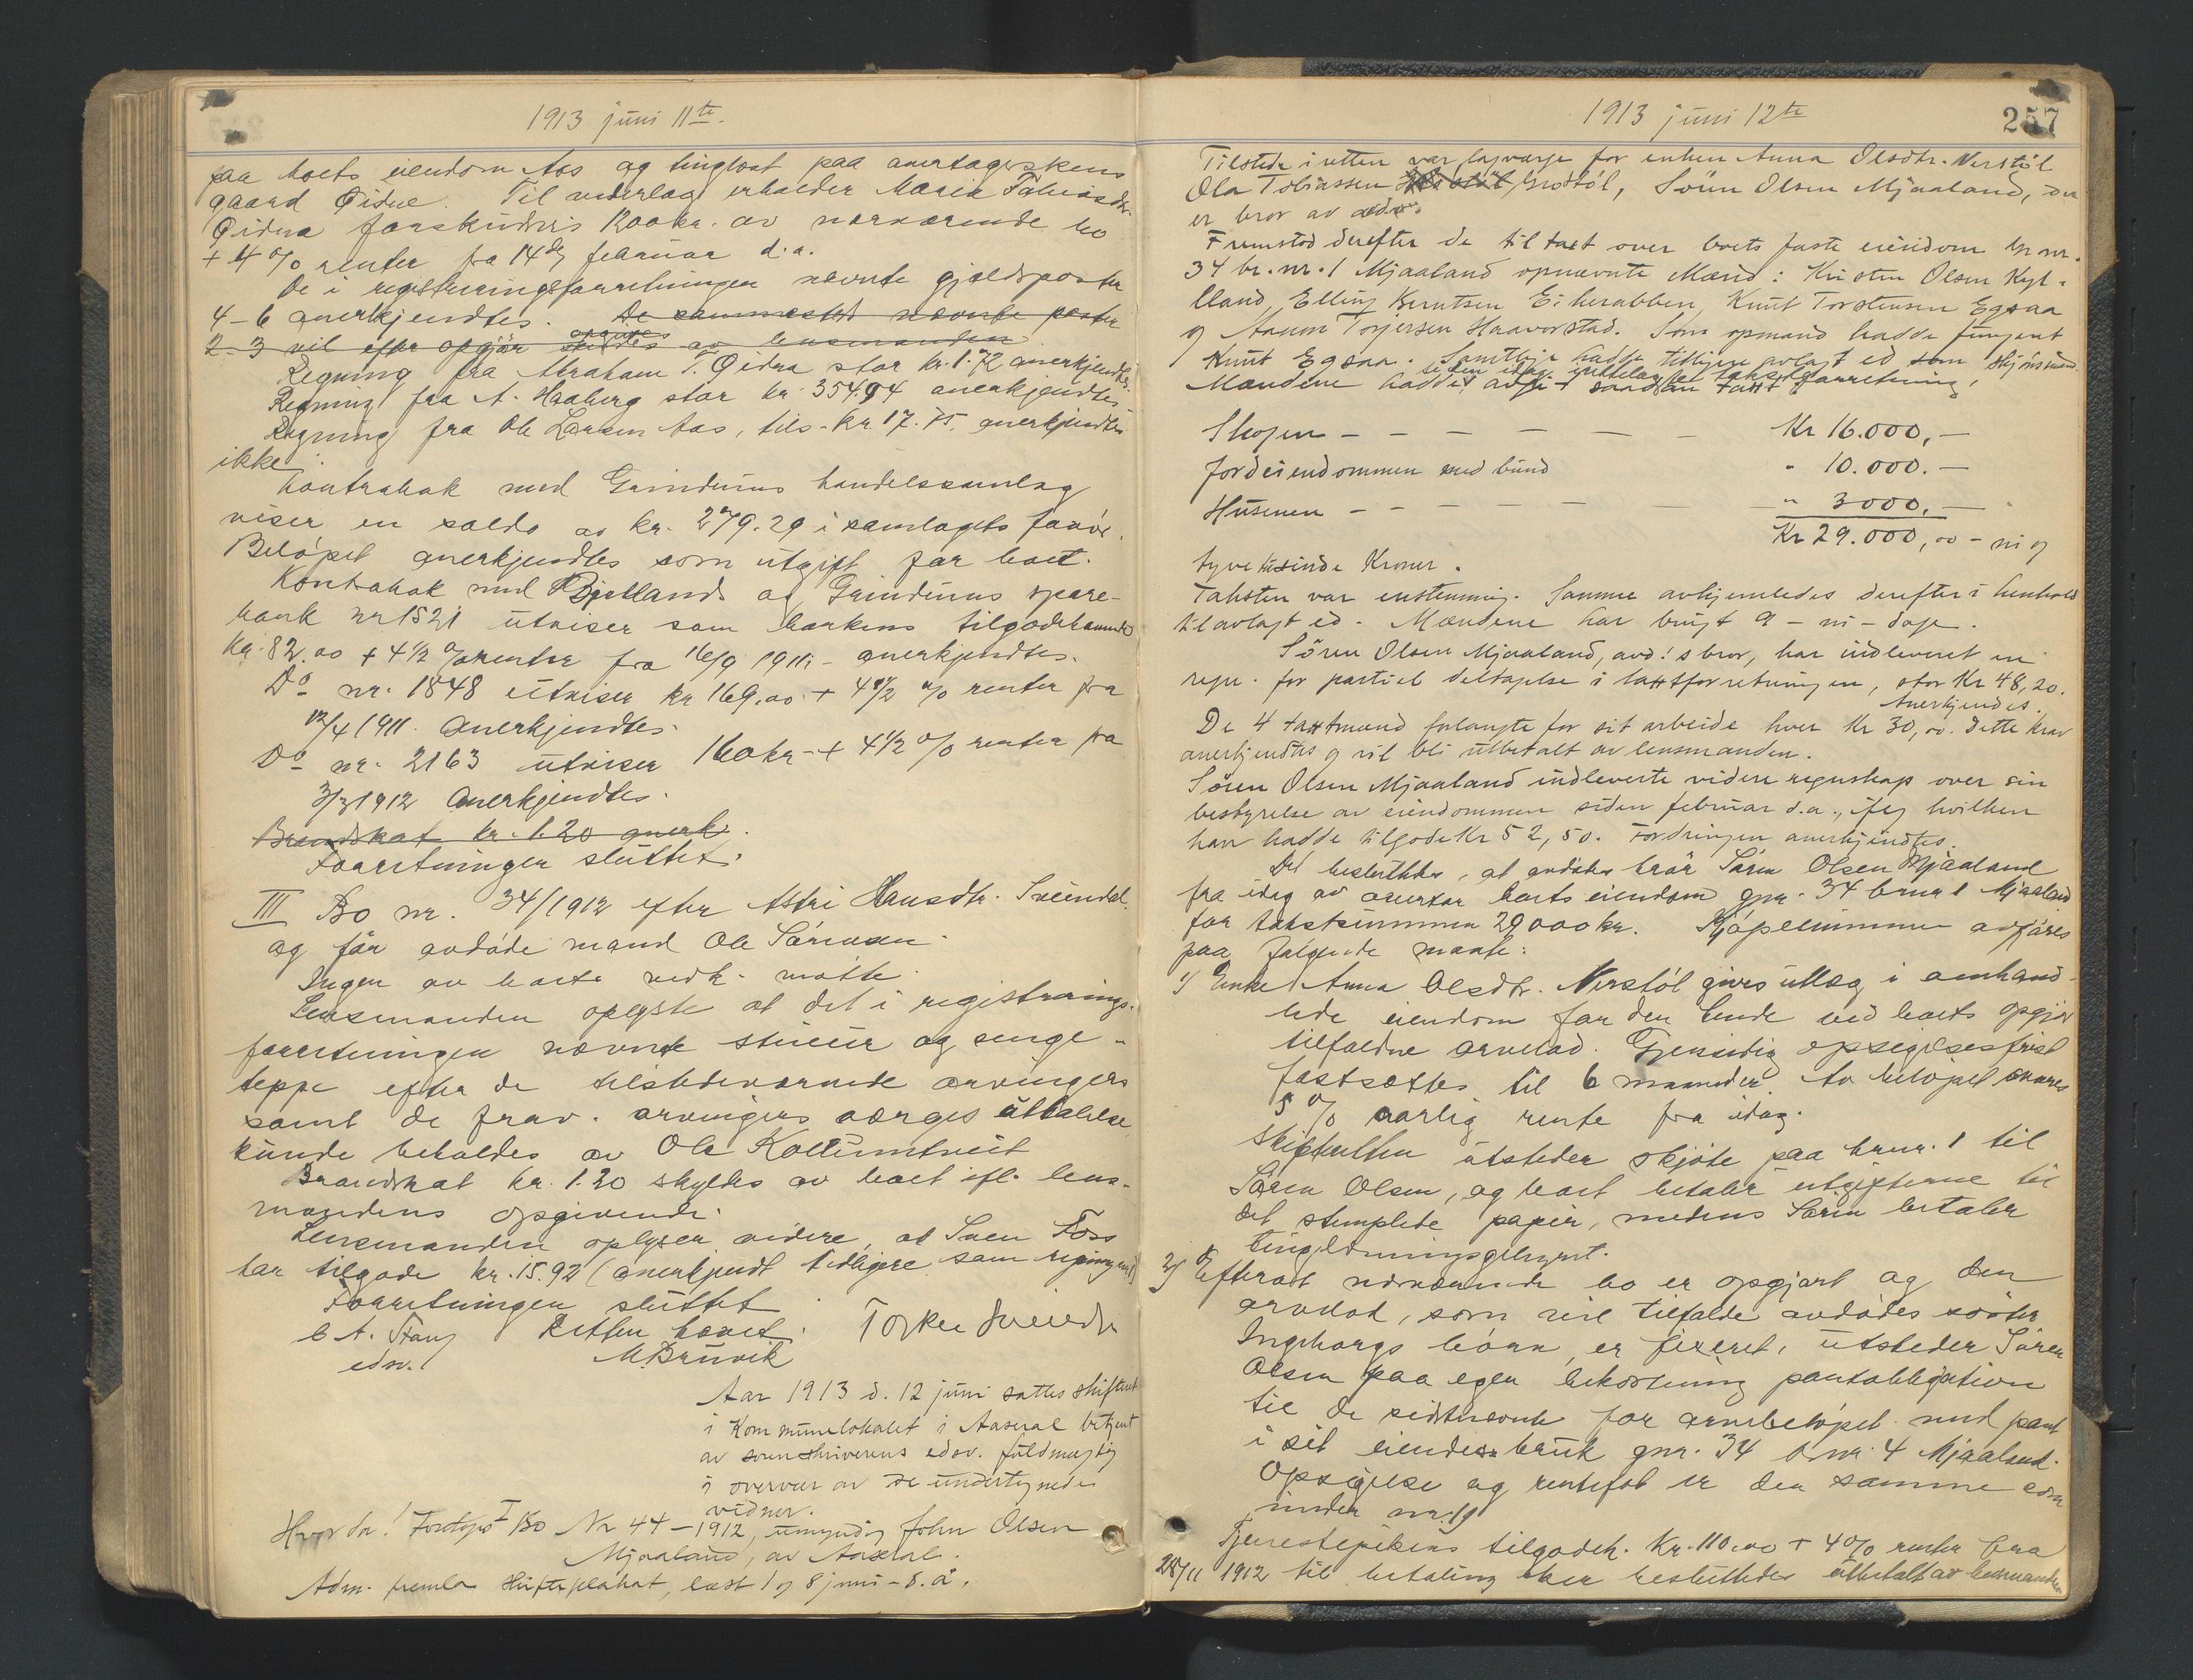 1913 juni 11te.
paa boets eiendom Aas og tinglæst paa overtagerskens
gaard Øidne. Til vederlag erholder Maria Tobiasdtr.
Øidna forskudsvis 1200 kr. av nærværende bo
+ 4 % renter fra 14de februar d.a.
De i registreringsforretningen nævnte gjældsposter
4-6 anerkjendtes. De sammesteds nævnte poster
2-3 vil efter opgjør av lensmanden
Regning fra Abraham T. Øidna stor kr. 1.72 anerkjendtes.
Regning fra A. Haaberg stor kr. 354.94 anerkjendtes
Regning fra Ole Larsen Aas, tils. kr. 17.75, anerkjendtes
ikke.
Kontrabok med Grindums handelssamlag
viser en saldo av kr. 279.29 i samlagets favør.
Beløpet anerkjendtes som utgift for boet.
Kontrabok med Bjellands og Grindums spare-
bank nr 1521 utviser som bankens tilgodehavende
kr. 82.00 + 4 1/2 % renter fra 16/9 1911 - anerkjendtes.
Do nr. 1848 utviser kr 169.00 + 4 1/2 % renter fra
12/4 1911. Anerkjendtes.
Do nr. 2163 utviser 160 kr + 4 1/2 % renter fra
3/3 1912 Anerkjendtes.
Brandskat kr. 1.20 anerk.
Forretningen sluttet.
III Bo nr. 34/1912 efter Astri Hansdtr. Sveindal
og før avdøde mand Ole Sørensen.
Ingen av boets vedk. møtte.
Lensmanden oplyste at det i registrerings-
forretningen nævnte stueur og senge-
teppe efter de tilstedeværende arvingers
samt de frav. arvingers værges uttalelse
kunde beholdes av Ole Kollumtveit
Brandskat kr. 1.20 skyldes av boet ifl. lens-
mandens opgivende.
Lensmanden oplyser videre, at Sven Foss
har tilgode kr. 15.92 (anerkjendt tidligere som regning)
Forretningen sluttet.
Retten hævet.
C A. Stang
edsv.
M. Bruvik
Torkel Sveindal
Aar 1913 d. 12 juni sattes skifteret
i Kommunelokalet i Aaseral betjent
av sorenskriverens edsv. fuldmægtig
i overvær av de undertegnede
vidner.
Hvorda! Foretoges I Bo Nr 44 - 1912, umyndig John Olsen
Mjaaland, av Aaseral.
Adm. fremla skifteplakat, læst 1 og 8 juni d.a.
1913 juni 12te
257
Tilstede i retten var lagværge for enken Anna Olsdtr. Nerstøl
Ola Tobiassen Grostøl, Søren Olsen Mjaaland, der
er bror av avdøde.
Fremstod derefter de til taxt over boets faste eiendom Gr. nr.
34 br. nr. 1 Mjaaland opnævnte Mænd: Kristen Olsen Kyl-
lland, Elling Berntsen Eikerabben, Knut Torstensen Egsaa
og Aanon Torjersen Haaverstad. Som opmand hadde fungert
Knut Egsaa. Samtlige hadde tidligere avlagt ed som skjønsmænd.
Mændene hadde siden idag
Skogen - - - - - - Kr 16.000,-
Jordeiendommen med bund " 10.000.-
Husenen - - - - - " 3000,-
Kr 29.000,00 - ni og
tyve tusinde Kroner.
Taksten var enstemmig. Samme avhjemledes derefter i henhold
til avlagt ed. Mændene har brugt 9 - ni - dage.
Søren Olsen Mjaaland, avd!s bror, har indleveret en
regn. for partiel deltagelse i taxtforretningen, stor Kr 48,20.
Anerkjendes.
De 4 taxtmænd forlangte for sit arbeide hver Kr 30,00. Dette krav
anerkjendtes og vil bli utbetalt av lensmanden.
Søren Olsen Mjaaland indleverte videre regnskap over sin
bestyrelse av eiendommen siden februar d.a., iføg hvilken
han hadde tilgode Kr 52,50. Fordringen anerkjendtes.
Det besluttedes, at avdødes bror Søren Olsen Mjaaland
fra idag av overtar boets eiendom gnr. 34 brnr 1 Mjaaland
for takstsummen 29000 kr. Kjøpesummen avgjøres
paa følgende maate:
1) Enke Anna Olsdtr. Nerstøl gives utlæg i omhand-
lede eiendom for den hende ved boets opgjør
tilfaldne arvelod. Gjensidig opsigelsesfrist
fastsættes til 6 maaneder. Av beløpet svares
5 % aarlig rente fra idag.
Skifteretten utsteder skjøte paa brnr. 1 til
Søren Olsen, og boet betaler utgifterne til
det stemplede papir, medens Søren betaler
tinglæsningsgebyret.
2) Efterat nærværende bo er opgjort og den
arvelod, som vil tilfalde avdødes søster
Ingeborgs børn, er fixeret, utsteder Søren
Olsen paa egen bekostning pantobligation
til de sidstnævnte for arvebeløpet med pant
i sit eiendes bruk gnr. 34 brnr. 4 Mjaaland.
Opsigelse og rentefot er den samme som
under nr. 1)
Tjenestepikens tilgodeh. Kr. 110.00 + 4 % renter fra
28/11 1912 til betaling sker besluttedes utbetalt av lensmanden